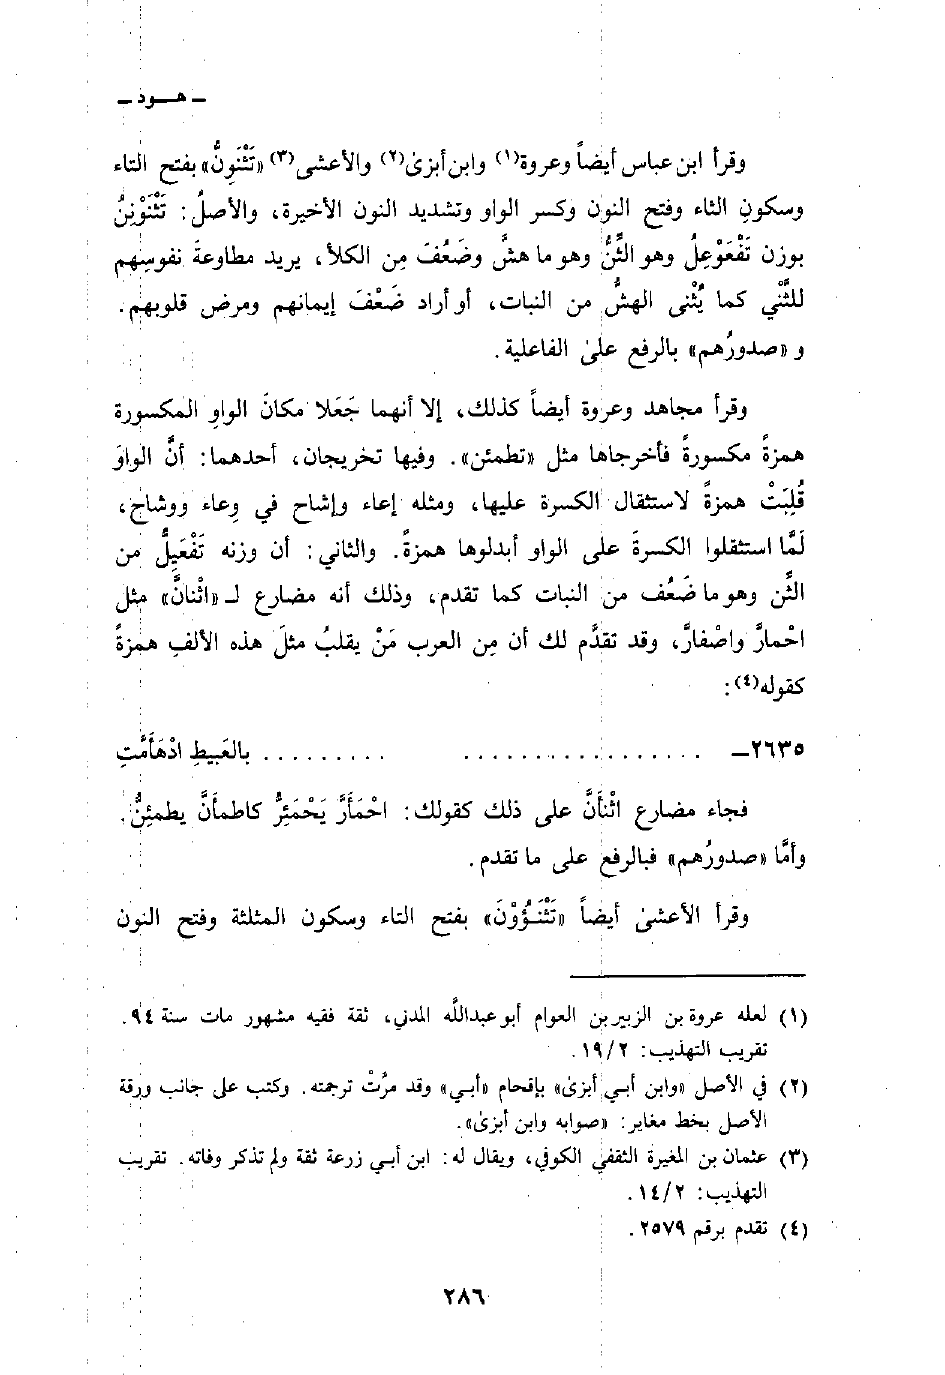 ـ هـــود ـ
وقرأ ابن عباس أيضاً وعروة(١) وابن أبزىٰ(٢) والأعشى(٣) «تَثْنَوِنُّ» بفتح التاء
وسكونِ الثاء وفتح النون وكسر الواو وتشديد النون الأخيرة، والأصلُ: تَثْنَوْنِنُ
بوزن تَفْعَوْعِلُ وهو الثِّنُّ وهو ما هشَّ وضَعُفَ مِن الكلأ، يريد مطاوعةَ نفوسِهم
للثَّنْي كما يُثْنى الهشُّ من النبات، أو أراد ضَعْفَ إيمانهم ومرض قلوبهم.
و «صدورُهم» بالرفع علىٰ الفاعلية.
وقرأ مجاهد وعروة أيضاً كذلك، إلا أنهما جَعَلا مكانَ الواوِ المكسورة
همزةً مكسورةً فأخرجاها مثل «تطمئن». وفيها تخريجان، أحدهما: أنَّ الواوَ
قُلِبَتْ همزةً لاستثقال الكسرة عليها، ومثله إعاء وإشاح في وِعاء ووشاح،
لَمَّا استثقلوا الكسرةَ على الواو أبدلوها همزةً. والثاني: أن وزنه تَفْعَيِلُّ من
الثِّن وهو ما ضَعُف من النبات كما تقدم، وذلك أنه مضارع لـ «اثْنانَّ» مثل
احْمارَّ واصْفارَّ، وقد تقدَّم لك أن مِن العرب مَنْ يقلبُ مثلَ هذه الألفِ همزةً
كقوله(٤):
٢٦٣٥ـ . . . . . . . . . . . . . . . . . . . . . . . . . . بالعَبيطِ ادْهَأَمَّتِ
فجاء مضارع اثْنَأَنَّ على ذلك كقولك: احْمَأَرَّ يَحْمَئِرُّ كاطمأنَّ يطمئِنُّ.
وأمَّا «صدورُهم» فبالرفع على ما تقدم.
وقرأ الأعشىٰ أيضاً «تَثْنَؤُوْنَ» بفتح التاء وسكون المثلثة وفتح النون
(١) لعله عروة بن الزبير بن العوام أبو عبدالله المدني، ثقة فقيه مشهور مات سنة ٩٤.
تقريب التهذيب: ١٩/٢.
(٢) في الأصل «وابن أبـي أبزىٰ» بإقحام «أبـي» وقد مرَّتْ ترجمته. وكتب على جانب ورقة
الأصل بخط مغاير: «صوابه وابن أبزىٰ».
(٣) عثمان بن المغيرة الثقفي الكوفي، ويقال له: ابن أبـي زرعة ثقة ولم تذكر وفاته. تقريب
التهذيب: ١٤/٢.
(٤) تقدم برقم ٢٥٧٩.
٢٨٦